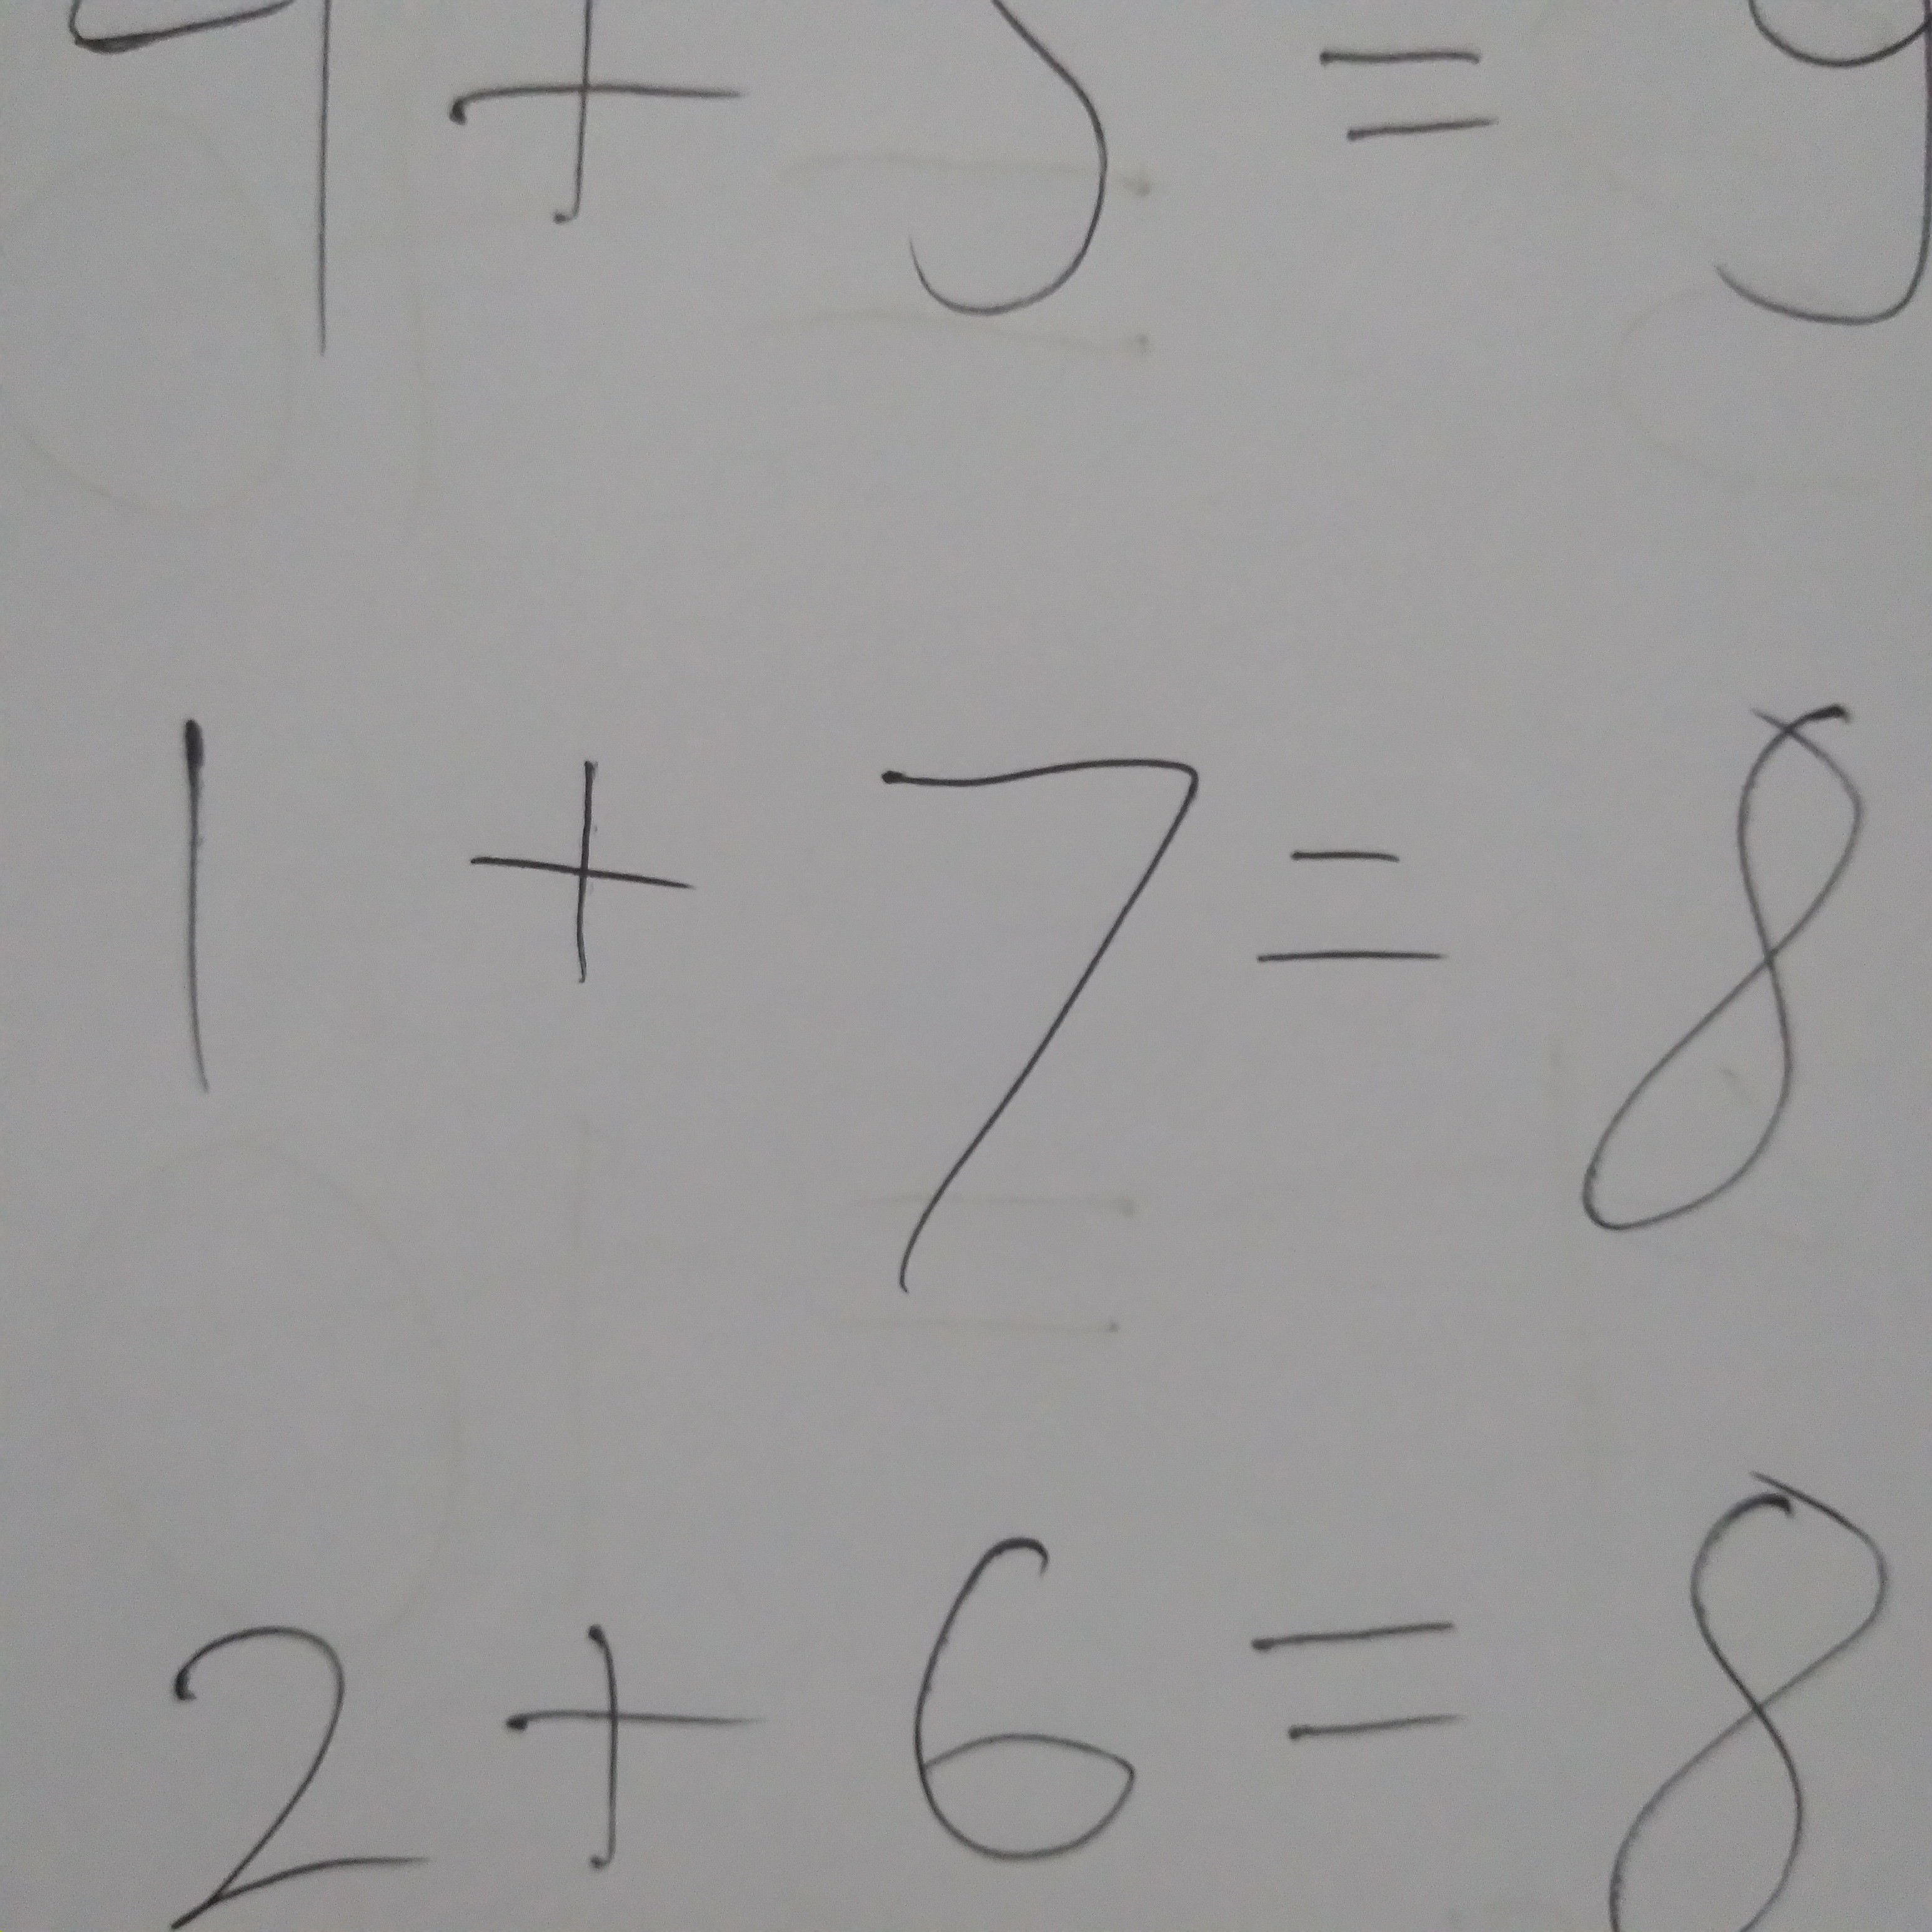 4 + 5 = 9
1 + 7 = 8
2 + 6 = 8